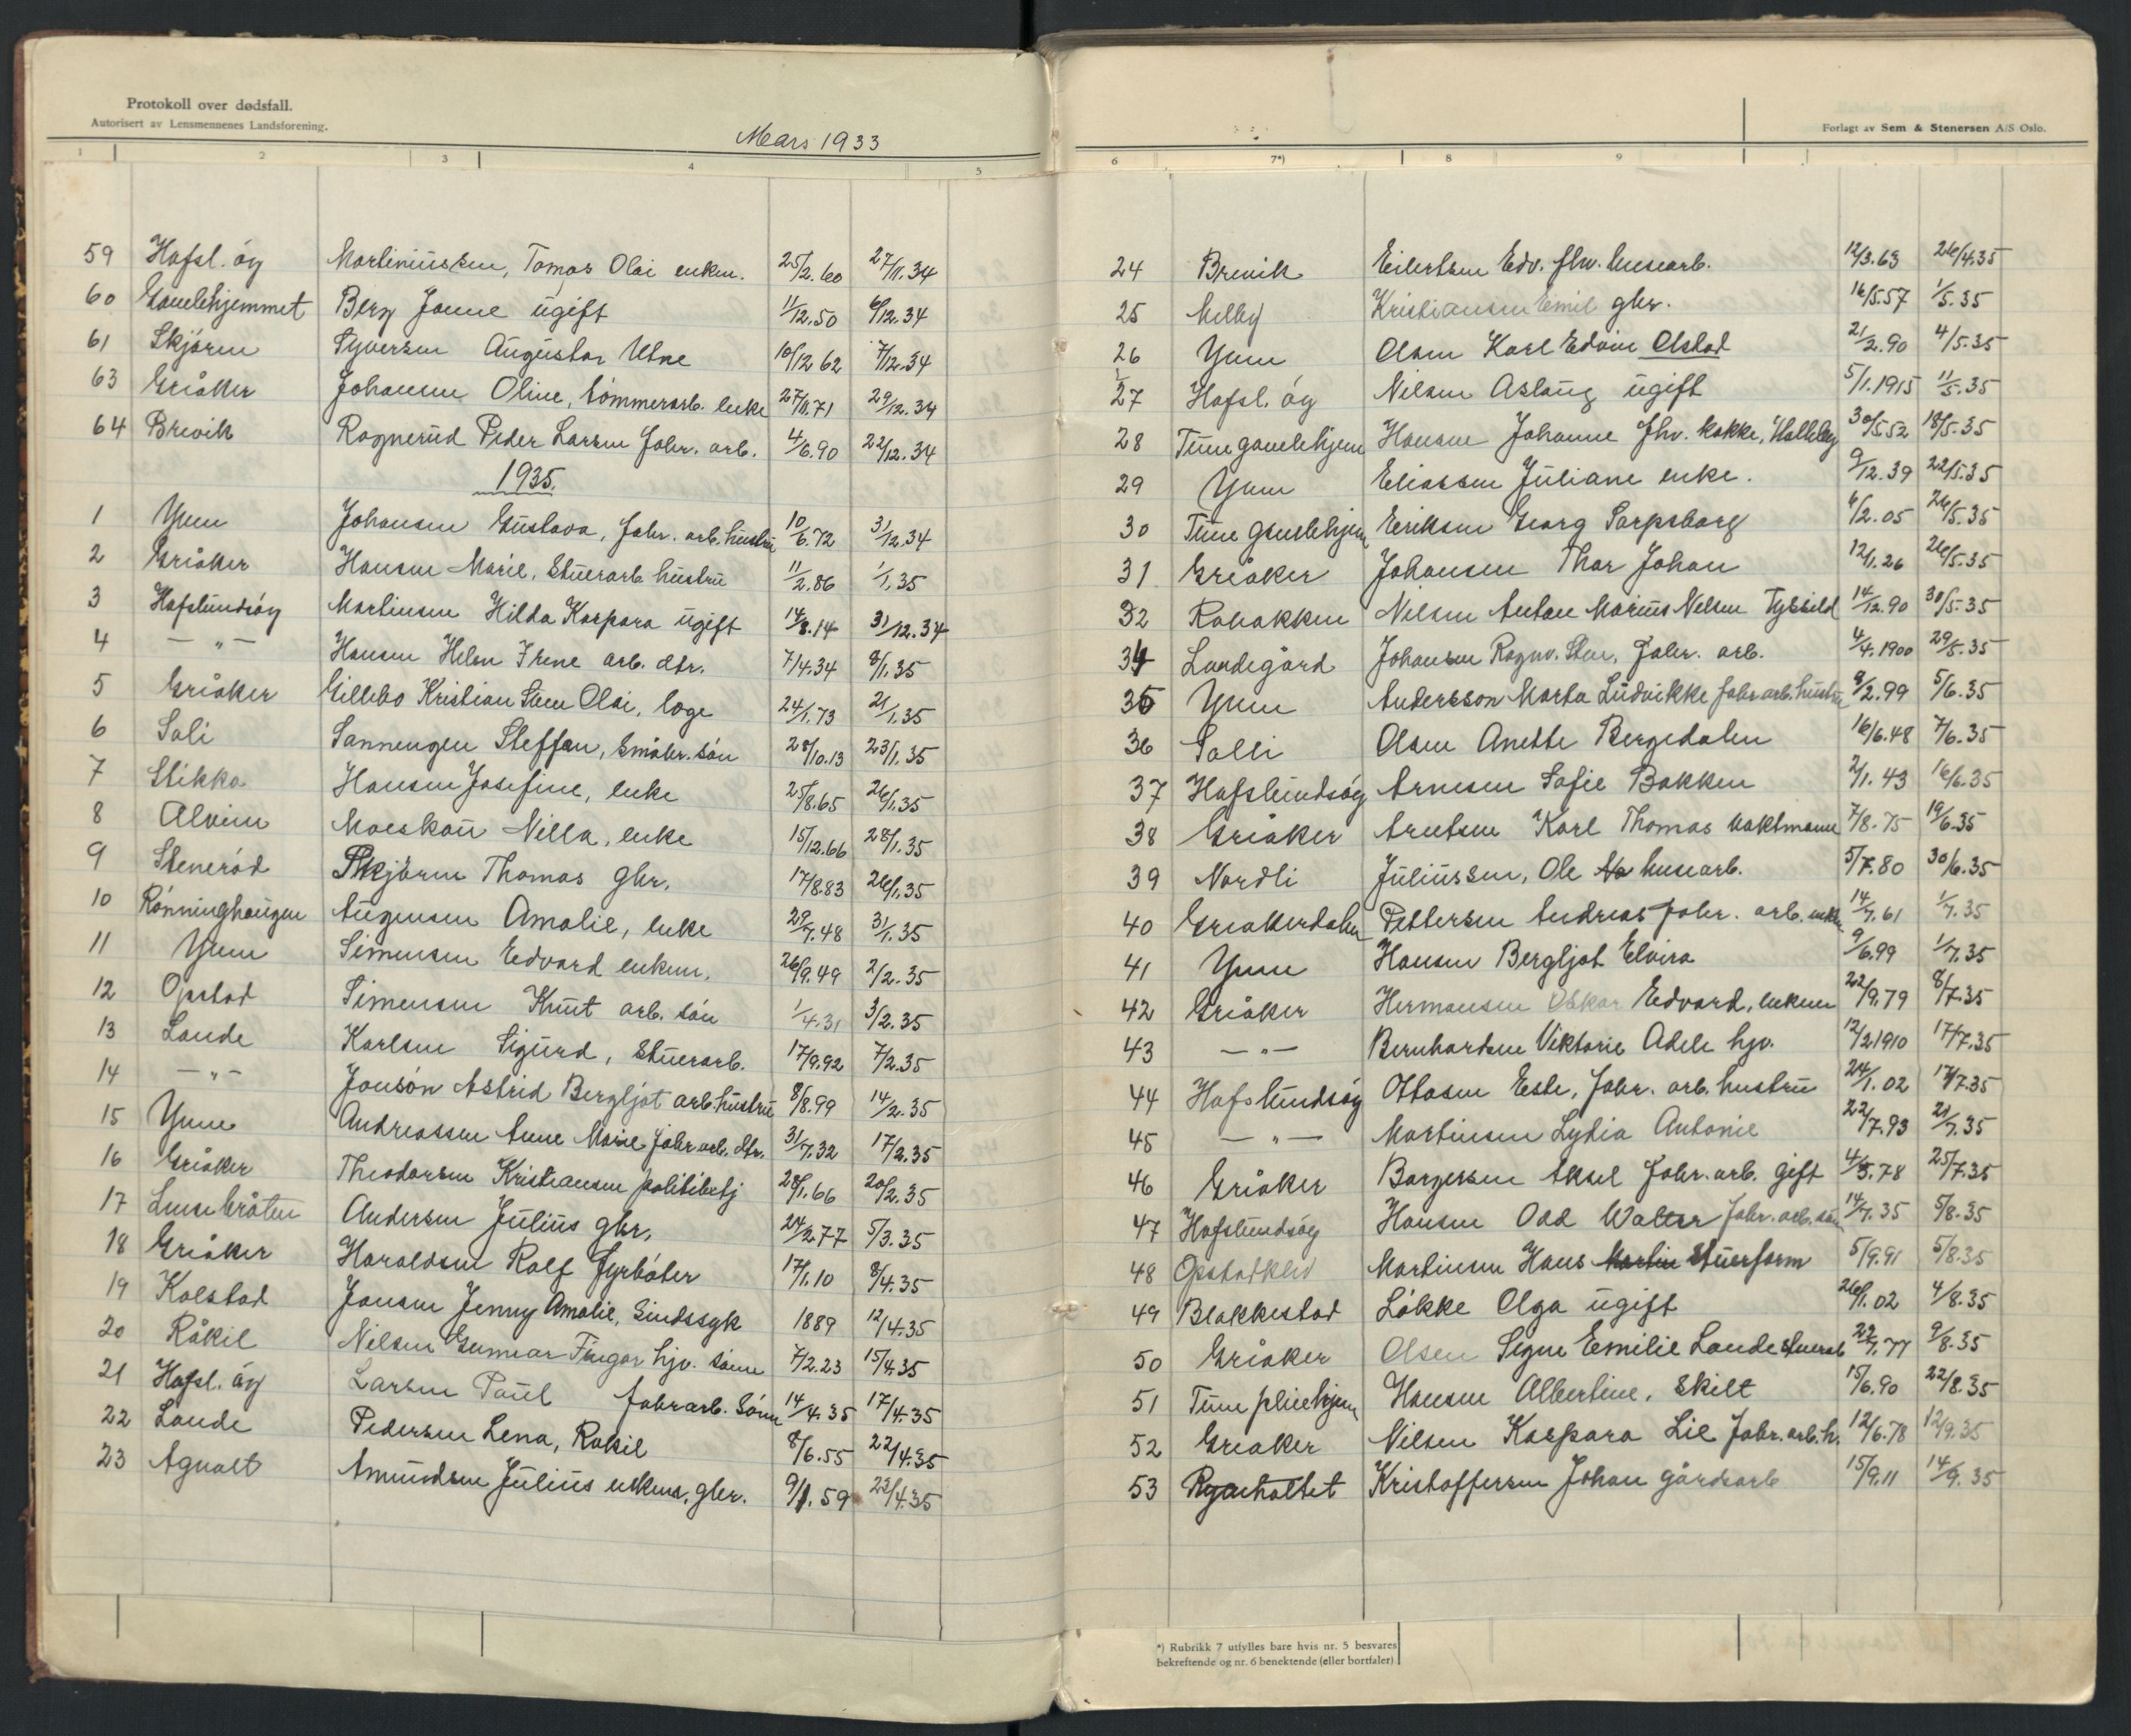 Protokoll over dødsfall.
Autorisert av Lensmennenes Landsforening.
Mars 1933
1 2 3 4 5
59 Hafsl. øy Martiniussen, Tomas Olai enkem. 25/2.60 27/11.34
60 Gamlehjemmet Berg Janne ugift 11/12.50 6/12.34
61 Skjøren Syversen Augusta Utne 10/12 62 7/12.34
63 Greåker Johansen Oline, tømmerarb. enke 27/11.71 29/12.34
64 Brevik Rognerud Peder Larsen fabr. arb. 4/6.90 22/12.34
1935.
1 Yven Johansen Gustava, fabr. arb. hustru 10/6.72 31/12.34
2 Greåker Hansen Marie, Stuerarb hustru 11/2.86 1/1.35
3 Hafslundsøy Martinsen Hilda Kaspara ugift 14/8.14 31/12.34
4 — „ — Hansen Helen Irene arb. dtr. 7/4.34 8/1.35
5 Greåker Gillebo Kristian Sten Olai, læge 24/1.73 21/1.35
6 Soli Sannengen Steffen, småbr. søn 28/10.13 23/1.35
7 Stikka Hansen Josefine, enke 25/8.65 26/1.35
8 Alvim Moeskau Nilla, enke 15/12.66 28/1.35
9 Stenerød Skjøren Thomas gbr. 17/8.83 26/1.35
10 Rønninghaugen Augensen Amalie, enke 29/7.48 31/1.35
11 Yven Simensen Edvard enkem. 26/9.49 2/2.35
12 Opstad Simensen Knut arb. søn 1/4.31 3/2.35
13 Lande Karlsen Sigurd, Stuerarb. 17/9.92 7/2.35
14 — „ — Jonsøn Astrid Bergljot arb. hustru 8/8.99 14/2.35
15 Yven Andreassen Anne Marie fabr arb. dtr. 31/7.32 17/2.35
16 Greåker Theodorsen Kristiansen politibetj 28/1.66 20/2.35
17 Lensebråten Andersen Julius gbr. 24/2.77 5/3.35
18 Greåker Haraldsen Rolf fyrbøter 17/1.10 8/4.35
19 Kolstad Jansen Jenny Amalie, Sindssyk 1889 12/4.35
20 Råkil Nilsen Gunnar Fingar hjv. sønn 7/2.23 15/4.35
21 Hafsl. øy Larsen Paul fabrarb. Sønn 14/4.35 17/4.35
22 Lande Pedersen Lena, Rakil 8/6.55 22/4.35
23 Agnalt Amundsen Julius enkem. gbr. 9/1.59 22/4.35
Forlagt av Sem & Stenersen A/S Oslo.
6 7*) 8 9
24 Brevik Eilertsen Edv. fhv. brusarb. 12/3.63 26/4.35
25 Melby Kristiansen Emil gbr. 16/5.57 1/5.35
26 Yven Olsen Karl Edvin Olstad 21/2.90 4/5.35
27 Hafsl. øy Nilsen Aslaug ugift 5/1.1915 11/5.35
28 Tune gamlehjem Hansen Johanne fhv. kokke, Halleby 30/5.52 18/5.35
29 Yven Eliassen Juliane enke. 9/12.39 22/5.35
30 Tune Gamlehjem Eriksen Georg Sarpsborg 6/2.05 26/5.35
31 Greåker Johansen Thor Johan 12/1.26 26/5.35
32 Rabakken Nilsen Anton Marius Nelsen Tyskild 14/12.90 30/5.35
34 Landegård Johansen Ragnv. Sten, fabr. arb. 4/4.1900 29/5.35
35 Yven Andersson Marta Ludvikke fabr arb. hustru 9/2.99 5/6.35
36 Solli Olsen Anette Bergedalen 16/6.48 7/6.35
37 Hafslundsøy Arnesen Sofie Bakken 2/1.43 16/6.35
38 Greåker Arntsen Karl Thomas vaktmann 7/8.75 19/6.35
39 Nordli Juliussen, Ole brusarb. 5/7.80 30/6.35
40 Greåkerdalen Pettersen Andreas fabr. arb. enkem 14/7.61 1/7.35
41 Yven Hansen Bergljot Elvira 9/6.99 1/7.35
42 Greåker Hermansen Oskar Edvard, enkem 22/9.79 8/7.35
43 — „ — Bernhardsen Viktorie Adele hjv. 12/2.1910 17/7.35
44 Hafslundsøy Ottosen Este, fabr. arb. hustru 24/1.02 17/7.35
45 — „ — Martinsen Lydia Antonie 22/7.93 21/7.35
46 Greåker Borgersen Aksel fabr. arb. gift 4/3.78 25/7.35
47 Hafslundsøy Hansen Odd Walter fabr. arb. søn 14/7.35 5/8.35
48 Opstadklev Martinsen Hans Martin Stuerform 5/9.91 5/8.35
49 Blakkestad Løkke Olga ugift 26/1.02 4/8.35
50 Greåker Olsen Signe Emilie Lande stuerarb 29/7.77 9/8.35
51 Tune pleiehjem Hansen Albertine, skilt 15/6.90 22/8.35
52 Greåker Nilsen Kaspara Lie fabr. arb. h. 12/6.78 12/9.35
53 Ryenholtet Kristoffersen Johan gårdsarb 15/9.11 14/9.35
*) Rubrikk 7 utfylles bare hvis nr. 5 besvares
bekreftende og nr. 6 benektende (eller bortfaler)